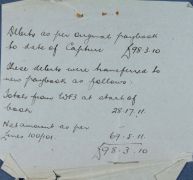 Debits as per original paybook
to date of Capture £98.3.10
These debits were transferred to
new paybook as follows:
Totals from WP3 at start of
book 28.17.11.
Net amount as per
lines 100/101. 69.5.11.
£98.3.10